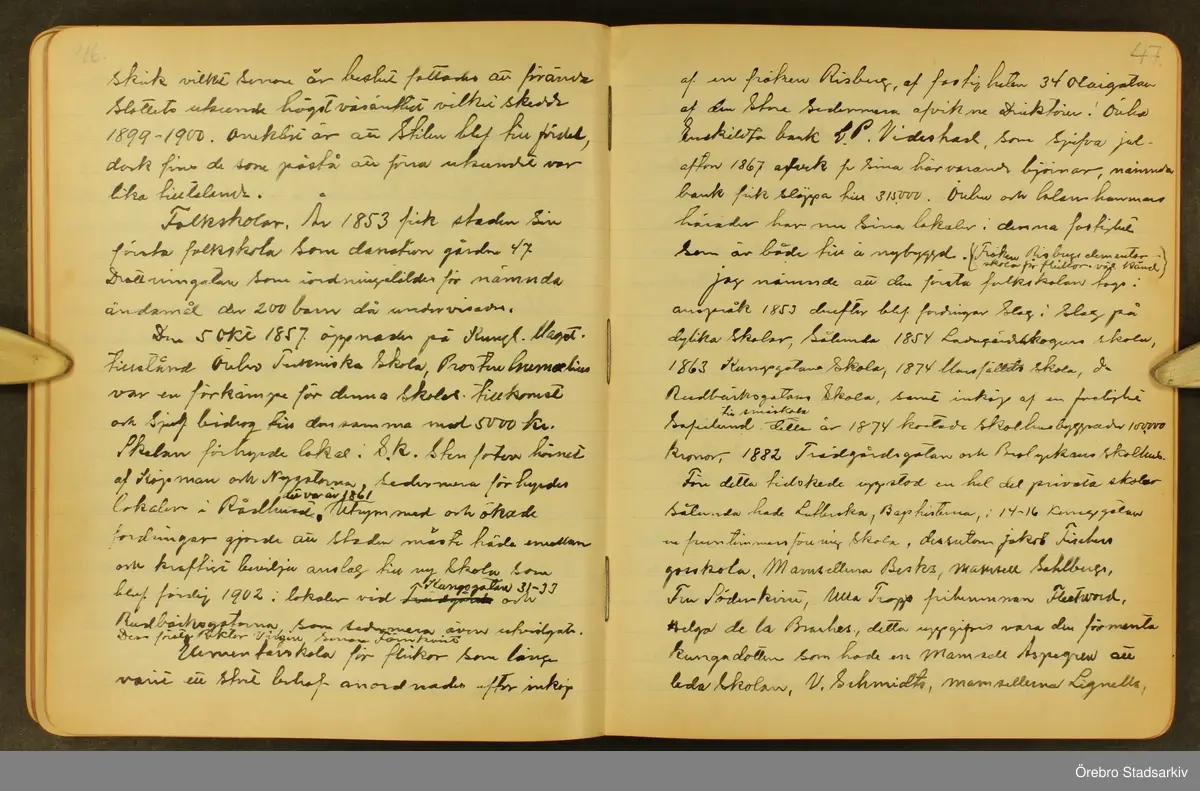 46.
skick vilket senare år beslut fattades att förändra
slottets utseende högst väsäntligt vilket skedde
1899-1900. Onekligt är att stilen blef till fördel,
dock fins de som påstå att förra utseendet var
lika tilltalande.
Folkskolor. År 1853 fick staden sin
första folkskola som donation gården 47
Drottninggatan som iordningstäldes för nämnda
ändamål der 200 barn då undervisades.
Den 5 Okt 1857. öppnades på Kungl. Majst.
tillstånd Örebro Tekniska Skola, Prosten
var en förkämpe för denna skolas tillkomst
och sjelf bidrog till densamma med 5000 kr.
Skolan förhyrde lokal i S.k. Stenfoten hörnet
af Köpman och Nygatorna, sedermera förhyrdes
lokaler i Rådhuset, till år 1861 Utrymmed och ökade
fordringar gjorde att staden måste träda emellan
och kraftigt bevilja anslag till ny skola som
blef färdig 1902 i lokaler vid Kungsgatan 31-33 och
Rudbäcksgatorna, som sedermera även utvidgats.
Dess första Rektor senare
Elementarskola för flickor som länge
varit ett stort behof anordnades efter inköp
47.
af en fröken Risberg, af fastigheten 34 Olaigatan
af den store sedermera afvikne Direktören i Örebro
Enskilda bank C.P. Videstrand, som sjelfva jul-
afton 1867 afvek fr sina härvarande björnar, nämnda
bank fick släppa till 315000. Örebro och Glanshammars
härader har nu sina lokaler i denna fastighet
som är både till o nybyggd. (Fröken Risbergs elementar-
skola för flickor väl känd)
Jag nämnde att den första folkskolan togs i
anspråk 1853 derefter blef fordringar slag i slag på
dylika skolor, Sålunda 1854 Ladugårdsskogens skola,
1863 Kungsgatans Skola, 1874 skola, da
Rudbäcksgatans Skola, samt inköp af en fastighet
till småskola
detta år 1874 kostade skolhusbyggnader 100,000
kronor, 1882 Trädgårdsgatan och skolhus.
Före detta tidskede uppstod en hel del privata skolor
Sålunda hade Lutherska, Baptisterna, i 14-16 Kungsgatan
en fruntimmersförening skola, dessutom Jakob Fischers
gosskola, Mamsellerna Besks, Mamsell Sahlbergs,
Fru Söderkvist, Ulla Tropp friherrinnan Fleetword,
Helga de la Braches, detta uppgifvis vara den förmenta
kungadottern som hade en Mamsell Aspegren att
leda Skolan, V. Schmidts, mamsellerna Lignells,
Örebro Stadsarkiv